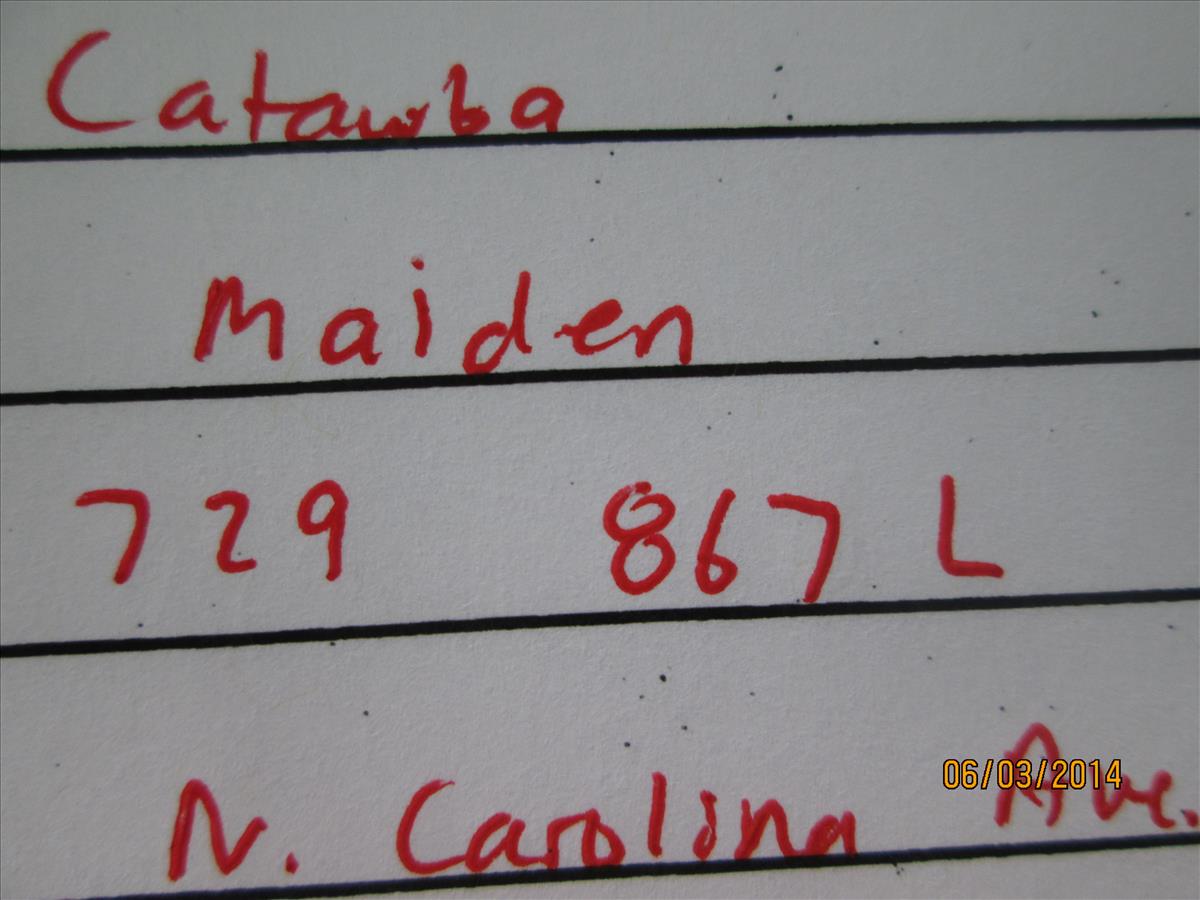 Catawba
Maiden
729 867 L
N. Carolina Ave.
06/03/2014